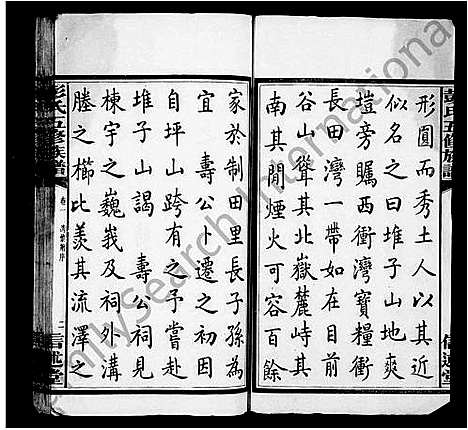 形圓而秀土人以其近
似名之曰堆子山地爽
塏旁矚西衝灣寶糧衝
長田灣一帶如在目前
谷山聳其北嶽麓峙其
南其閒煙火可容百餘
家於制田里長子孫為
宜壽公卜遷之初有
自坪山跨有之予嘗赴
堆子山謁壽公祠見
棟宇之巍峩及祠外溝
塍之櫛比羨其流澤之
彭氏五修族譜
卷一
二
信述堂
彭氏五修族譜
信述堂
FamilySearch International